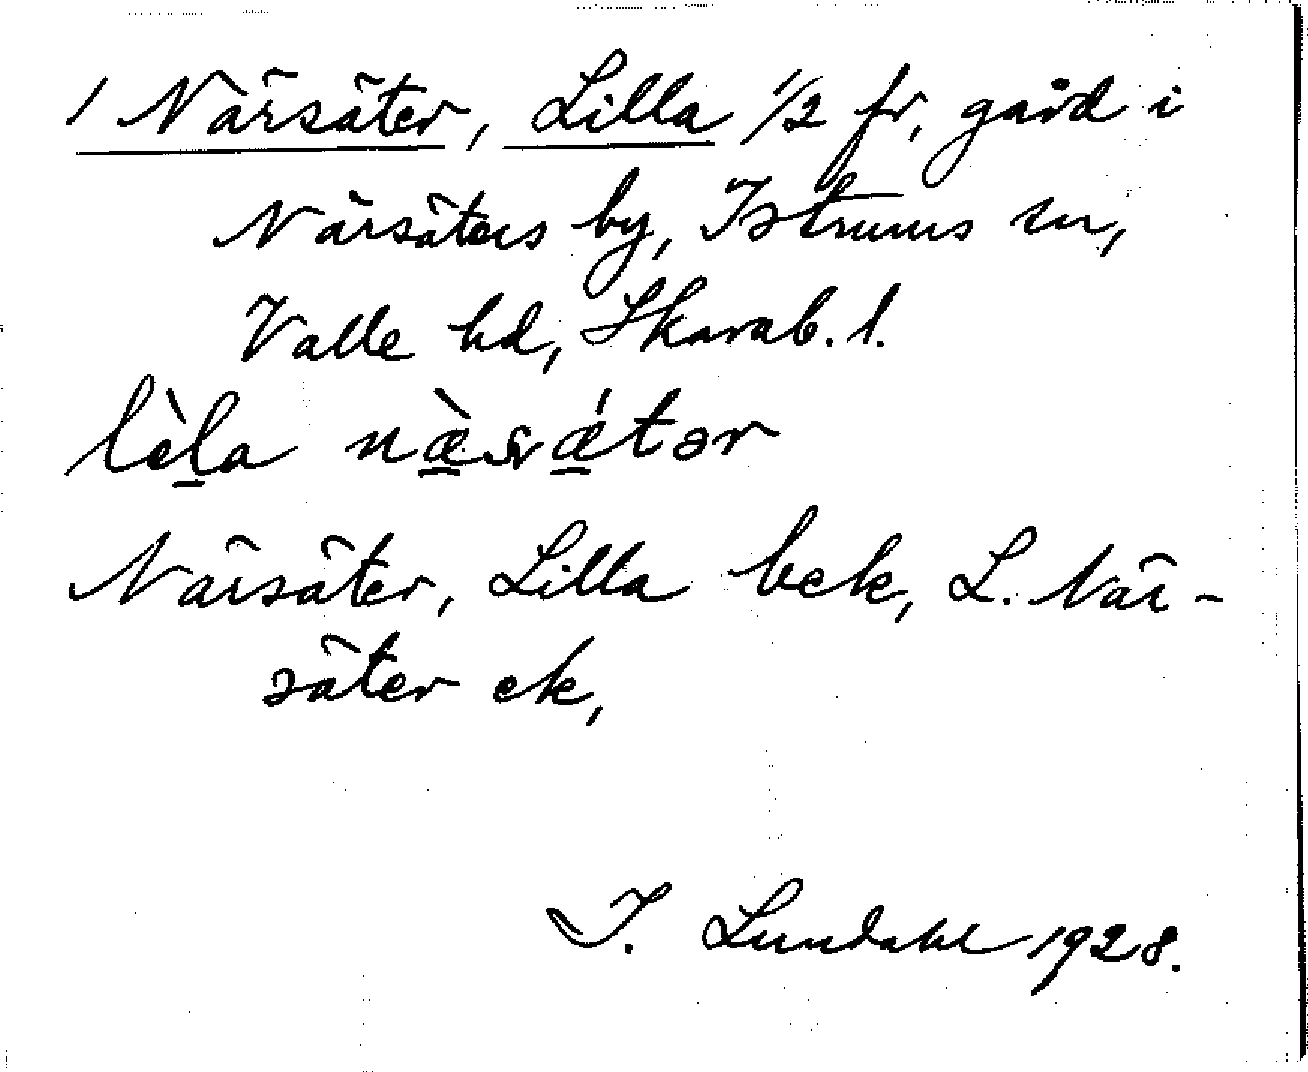 1 Närsäter, Lilla 1/2 fr, gård i
Närsäters by, Istrums sn,
Valle hd, Skarab. l.
lèla næ̀sǽtər
Närsäter, Lilla bek, L. När-
säter ek,
I. Lundahl 1928.